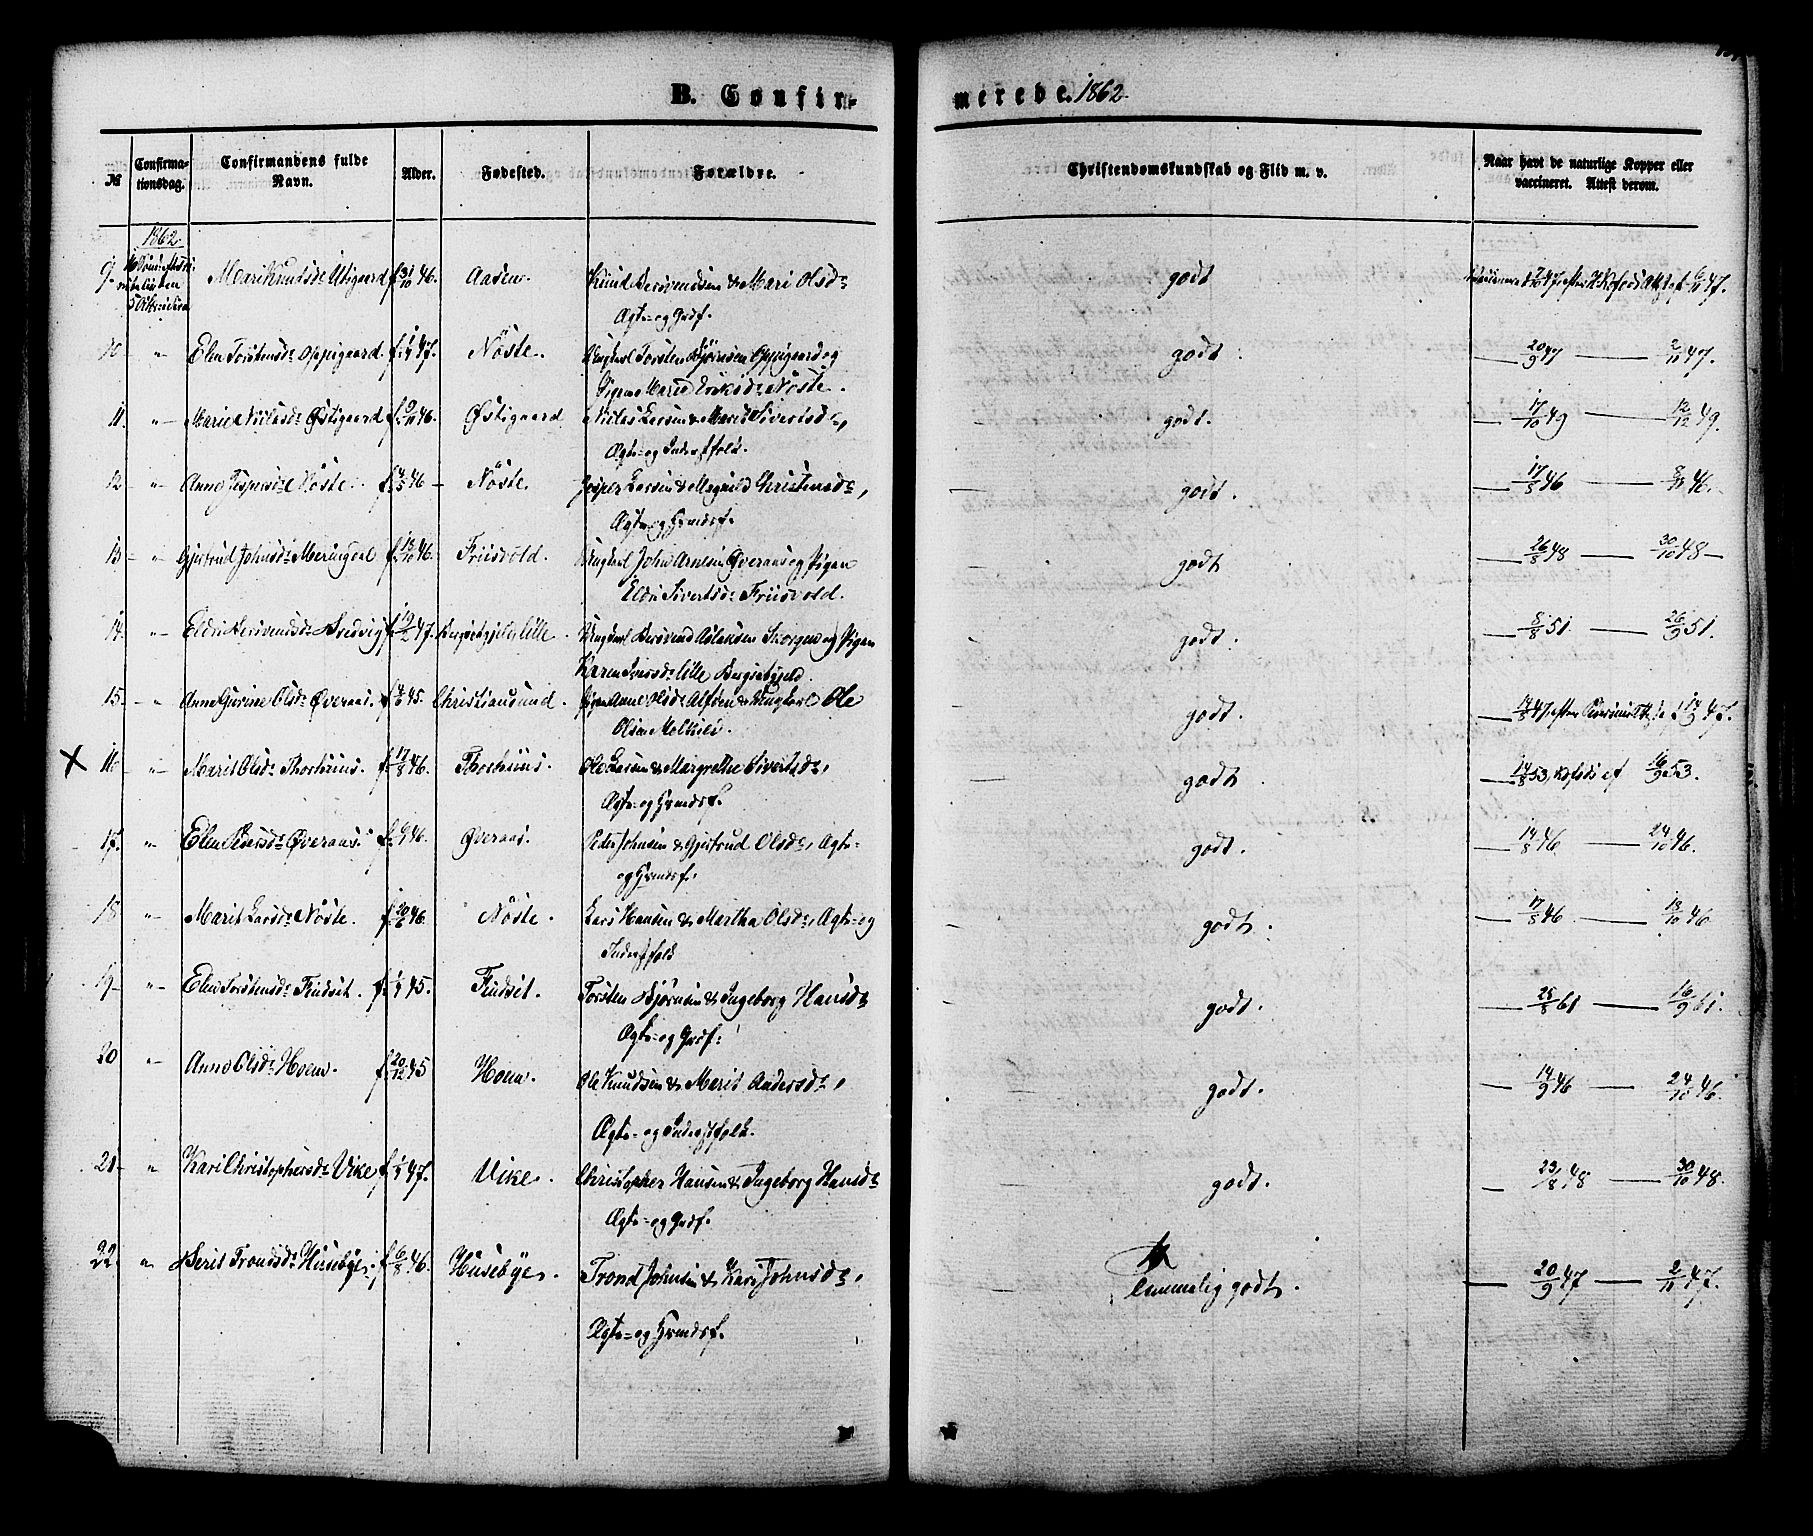 B. Confir-
merede. 1862.
№ Confirma-tionsdag. Confirmandens fulde Navn. Alder. Fødested. Forældre. Christendomskundskab og Flid m. v. Naar havt de naturlige Kopper eller vaccineret. Attest derom.
1862
9. Mari Knudsd: Utigaard f. 31/10 46. Aasen. Knud & Mari Olsd:
Ægte- og Grdf. godt 47.
10 " Elen Torstensd: Oppigaard. f. 47. Nöste. Ungkarl Torsten Bjørnsen Oppigaard og
Pigen Marit Eriksd: Nöste. godt. — 20/9 47 — 2/11 47.
11. " Marit Niclasd: Østigaard f. 9/11 46. Østigaard. Niclas Larsen & Marit Sivertsd:,
Ægte- og Inderstfolk. godt. 17/10 49 — 12/12 49.
12 " Anne Jespersd: Nöste. f. 46 Nöste. Jesper Larsen & Magnild Christensd:,
Ægte- og Grmdsf. godt. — 17/8 46 — 8/11 46.
13 " Gjertrud Johnsd: Meringdal f. 13/10 46. Friisvold. Ungkarl John Arnesen Øveraas og Pigen
Eldri Sivertsd: Friisvold. godt — 26/8 48 — 30/10 48 —
14. " Eldri f. 19/2 47. lille. Ungkarl Aslaksen Skorgen og Pigen
Karen Iversd: lille godt. — 8/8 51. — 26/9 51.
15. " Anne Gurine Olsd: Øveraas. f. 45. Christiansund. Pigen Anne Olsd: & Ungkarl Ole
Olsen godt. — 14/8 47, efter 14/9 47.
X 16. " Marit Olsd: Thorhuus. f. 17/8 46. Thorhuus. Ole Larsen & Margrethe Sivertsd:,
Ægte- og Grmdsf. godt — 14/8 53, 16/9 53.
17. " Elen Pedersd: Øveraas. f. 46. Øveraas. Peder Johnsen & Gjertrud Olsd:, Ægte-
og Grmdsf. godt. — 14/8 46 — 24/10 46.
18 " Marit Larsd: Nöste. f. 20/6 46. Nöste. Lars Hansen & Martha Olsd:, Ægte- og
Inderstfolk godt. — 17/8 46 — 13/10 46
19 " Elen Torstensd: Findset. f. 45. Findset. Torsten Bjørnsen & Ingeborg Hansd:
Ægte- og Grdf. godt. — 25/8 61 — 16/9 61.
20 " Anne Olsd: Hoem. f. 20/12 45 Hoem. Ole Knudsen & Marit Andersd:,
Ægte- og Inderstfolk. godt. — 14/9 46 — 24/10 46.
21 " Kari Christophersd: Vike f. 47. Vike. Christopher Hansen & Ingeborg Hansd:
Ægte- og Grdf. godt. — 23/8 48 — 30/10 48.
22. " Berit Trondsd: Husebye. f. 6/8 46. Husebye. Trond Johnsen & Kari Johnsd:,
Ægte- og Grmdsf. temmelig godt. — 20/9 47 — 2/11 47.